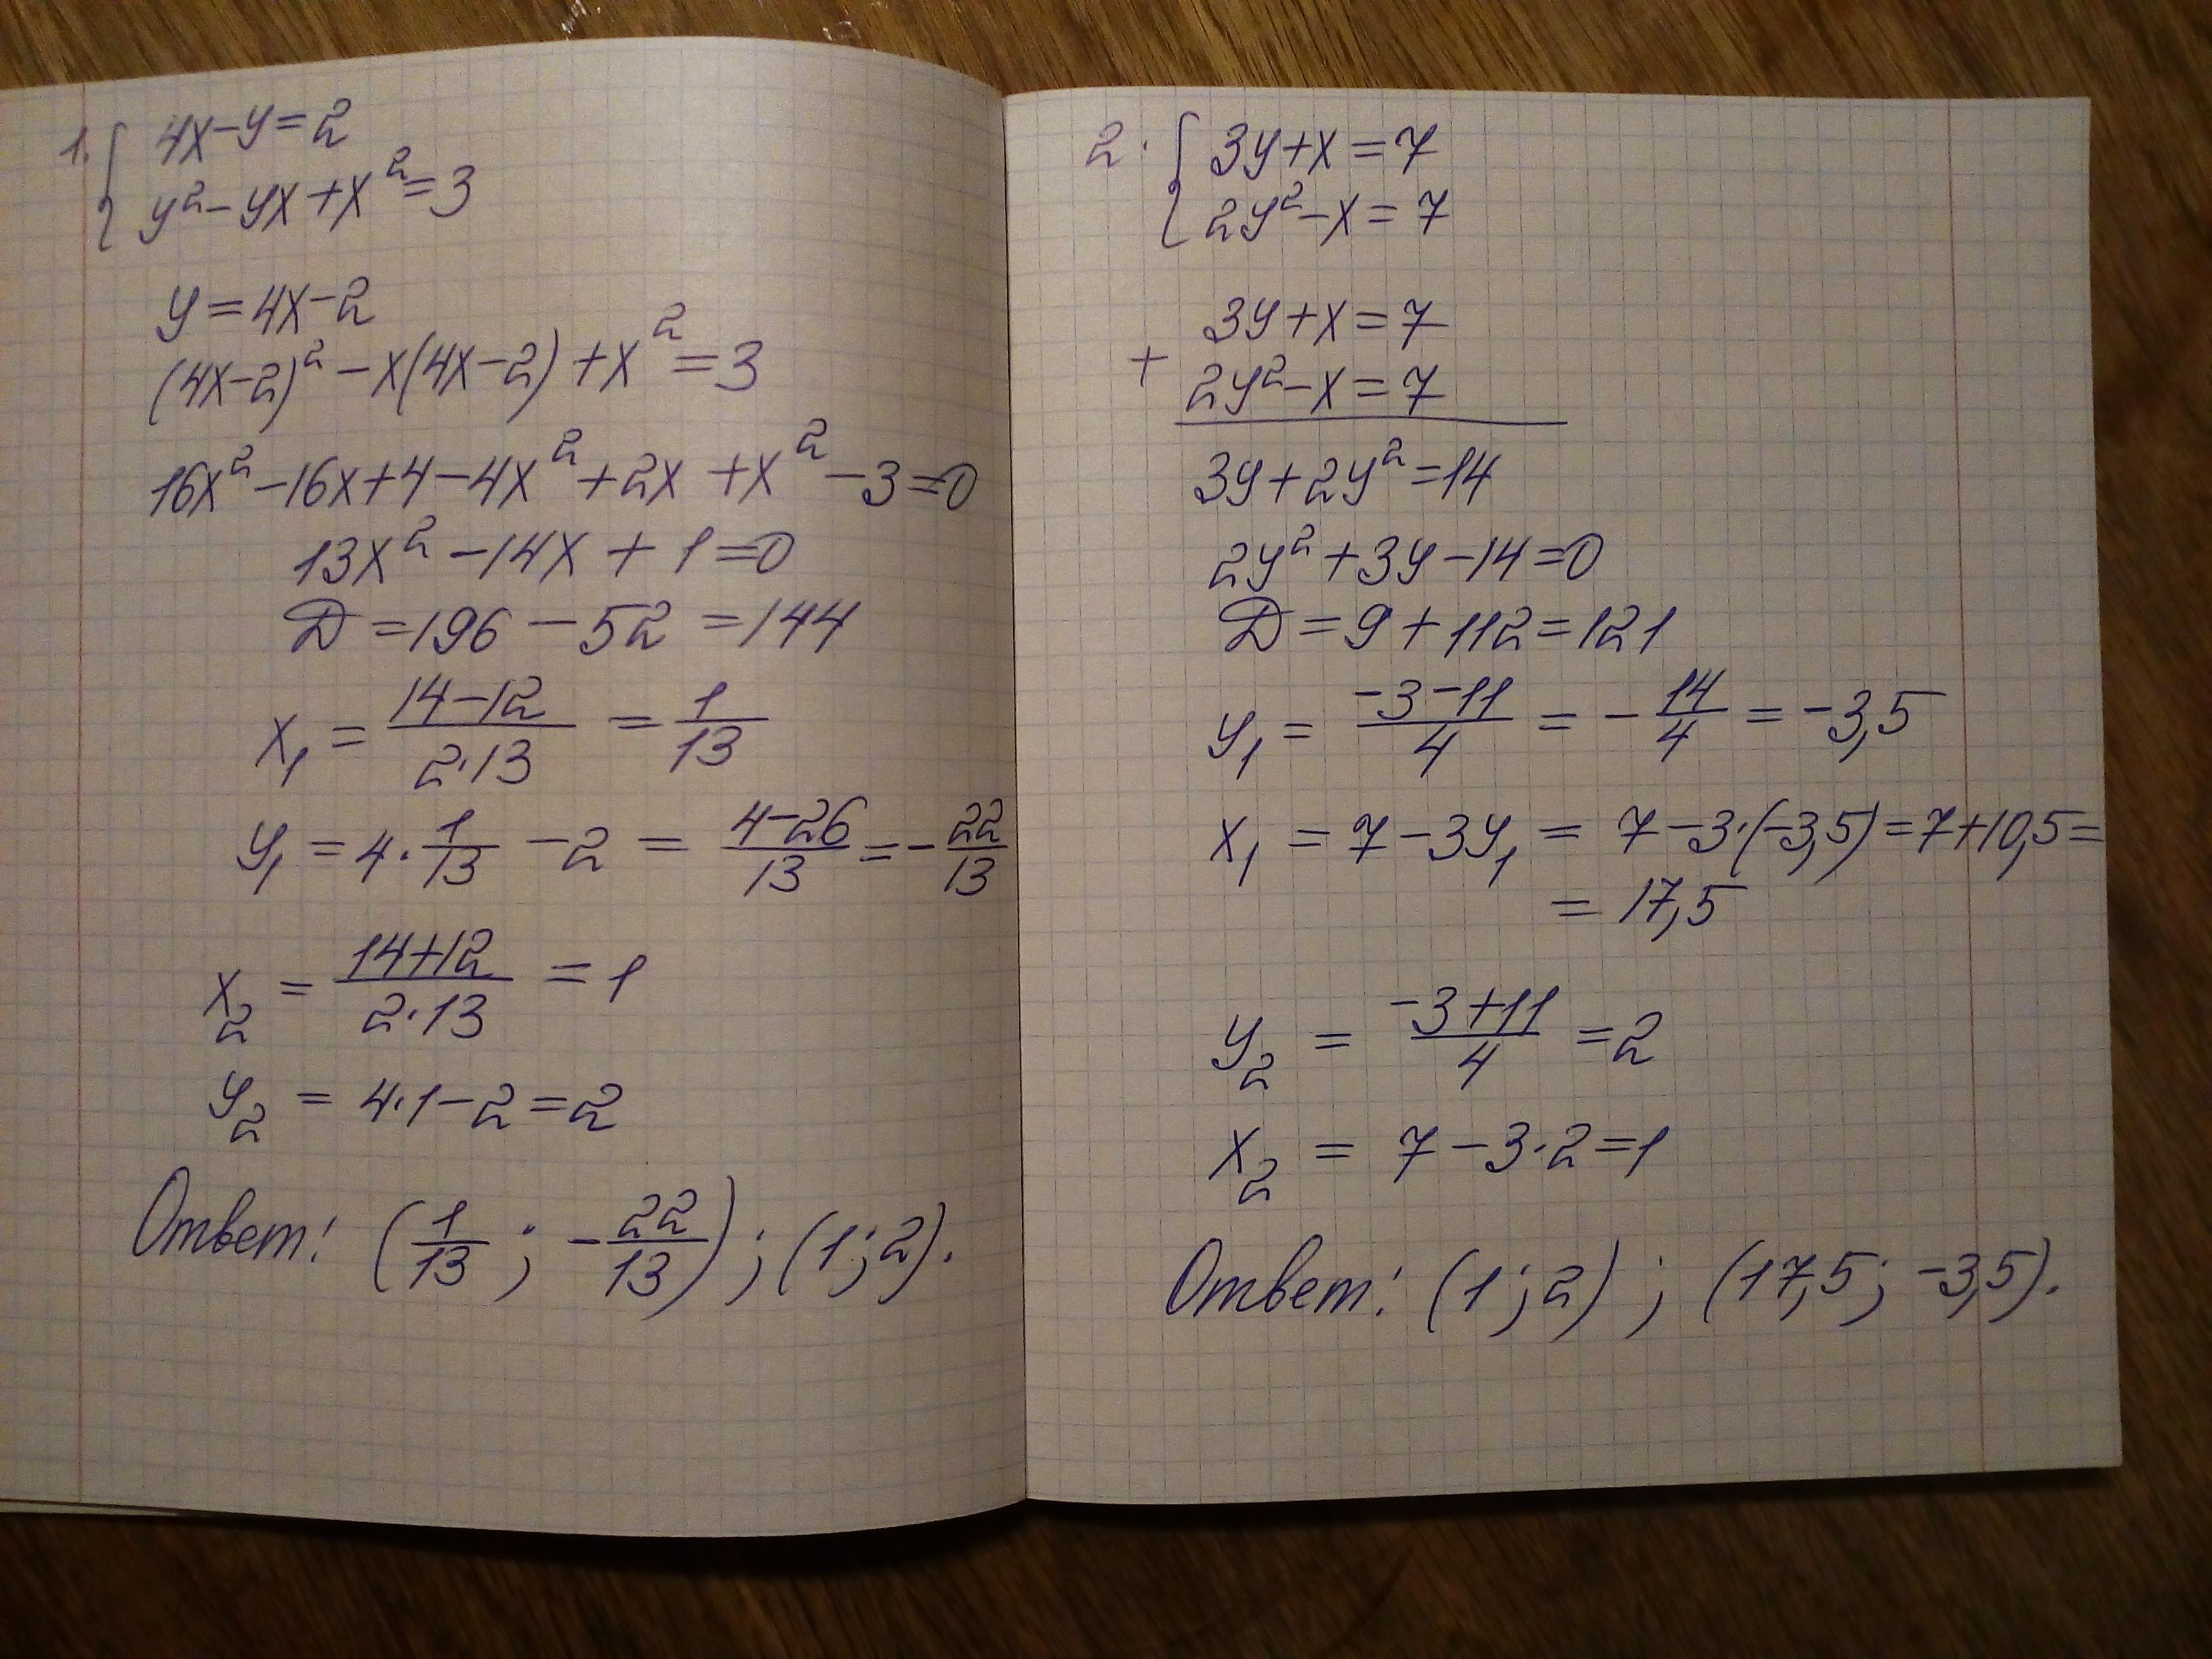 1. { 4x-y=2
y²-yx+x²=3
y=4x-2
(4x-2)²-x(4x-2)+x²=3
16x²-16x+4-4x²+2x+x²-3=0
13x²-14x+1=0
D=196-52=144
x₁ = (14-12)/(2·13) = 1/13
y₁ = 4·1/13 -2 = (4-26)/13 = -22/13
x₂ = (14+12)/(2·13) = 1
y₂ = 4·1-2=2
Ответ: (1/13; -22/13); (1;2).
2. { 3y+x=7
2y²-x=7
3y+x=7
+
2y²-x=7
3y+2y²=14
2y²+3y-14=0
D=9+112=121
y₁ = (-3-11)/4 = -14/4 = -3,5
x₁ = 7-3y₁ = 7-3·(-3,5)=7+10,5=
= 17,5
y₂ = (-3+11)/4 =2
x₂ = 7-3·2=1
Ответ: (1;2); (17,5; -3,5).